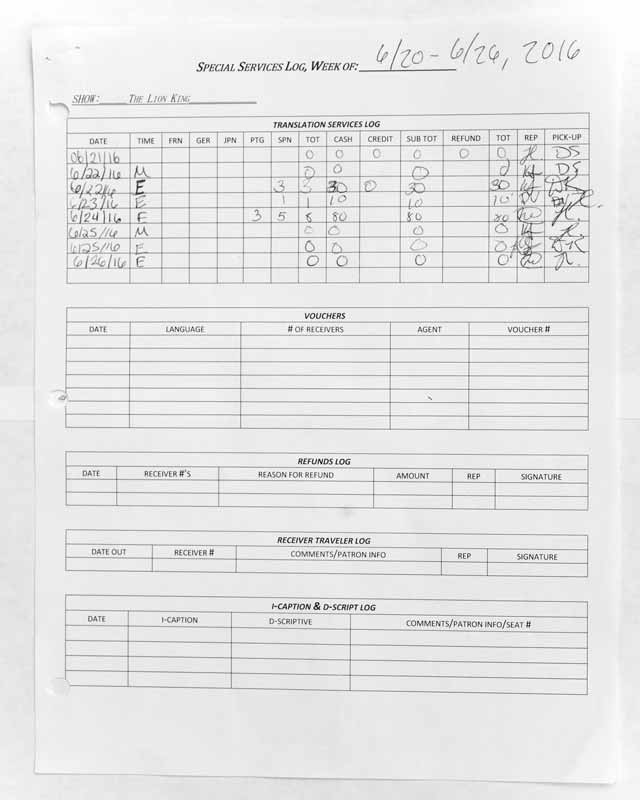 SPECIAL SERVICES LOG, WEEK OF: 6/20 - 6/26, 2016
SHOW: THE LION KING
TRANSLATION SERVICES LOG
DATE TIME FRN GER JPN PTG SPN TOT CASH CREDIT SUB TOT REFUND TOT REP PICK-UP
06/21/16 0 0 0 0 0 0 DS
6/22/16 M 0 0 0 0 DS
6/22/16 E 3 3 30 0 30 30
6/23/16 E 1 1 10 10 10
6/24/16 E 3 5 8 80 80 80
6/25/16 M 0 0 0 0
6/25/16 E 0 0 0 0
6/26/16 E 0 0 0 0
VOUCHERS
DATE LANGUAGE # OF RECEIVERS AGENT VOUCHER #
REFUNDS LOG
DATE RECEIVER #'S REASON FOR REFUND AMOUNT REP SIGNATURE
RECEIVER TRAVELER LOG
DATE OUT RECEIVER # COMMENTS/PATRON INFO REP SIGNATURE
I-CAPTION & D-SCRIPT LOG
DATE I-CAPTION D-SCRIPTIVE COMMENTS/PATRON INFO/SEAT #